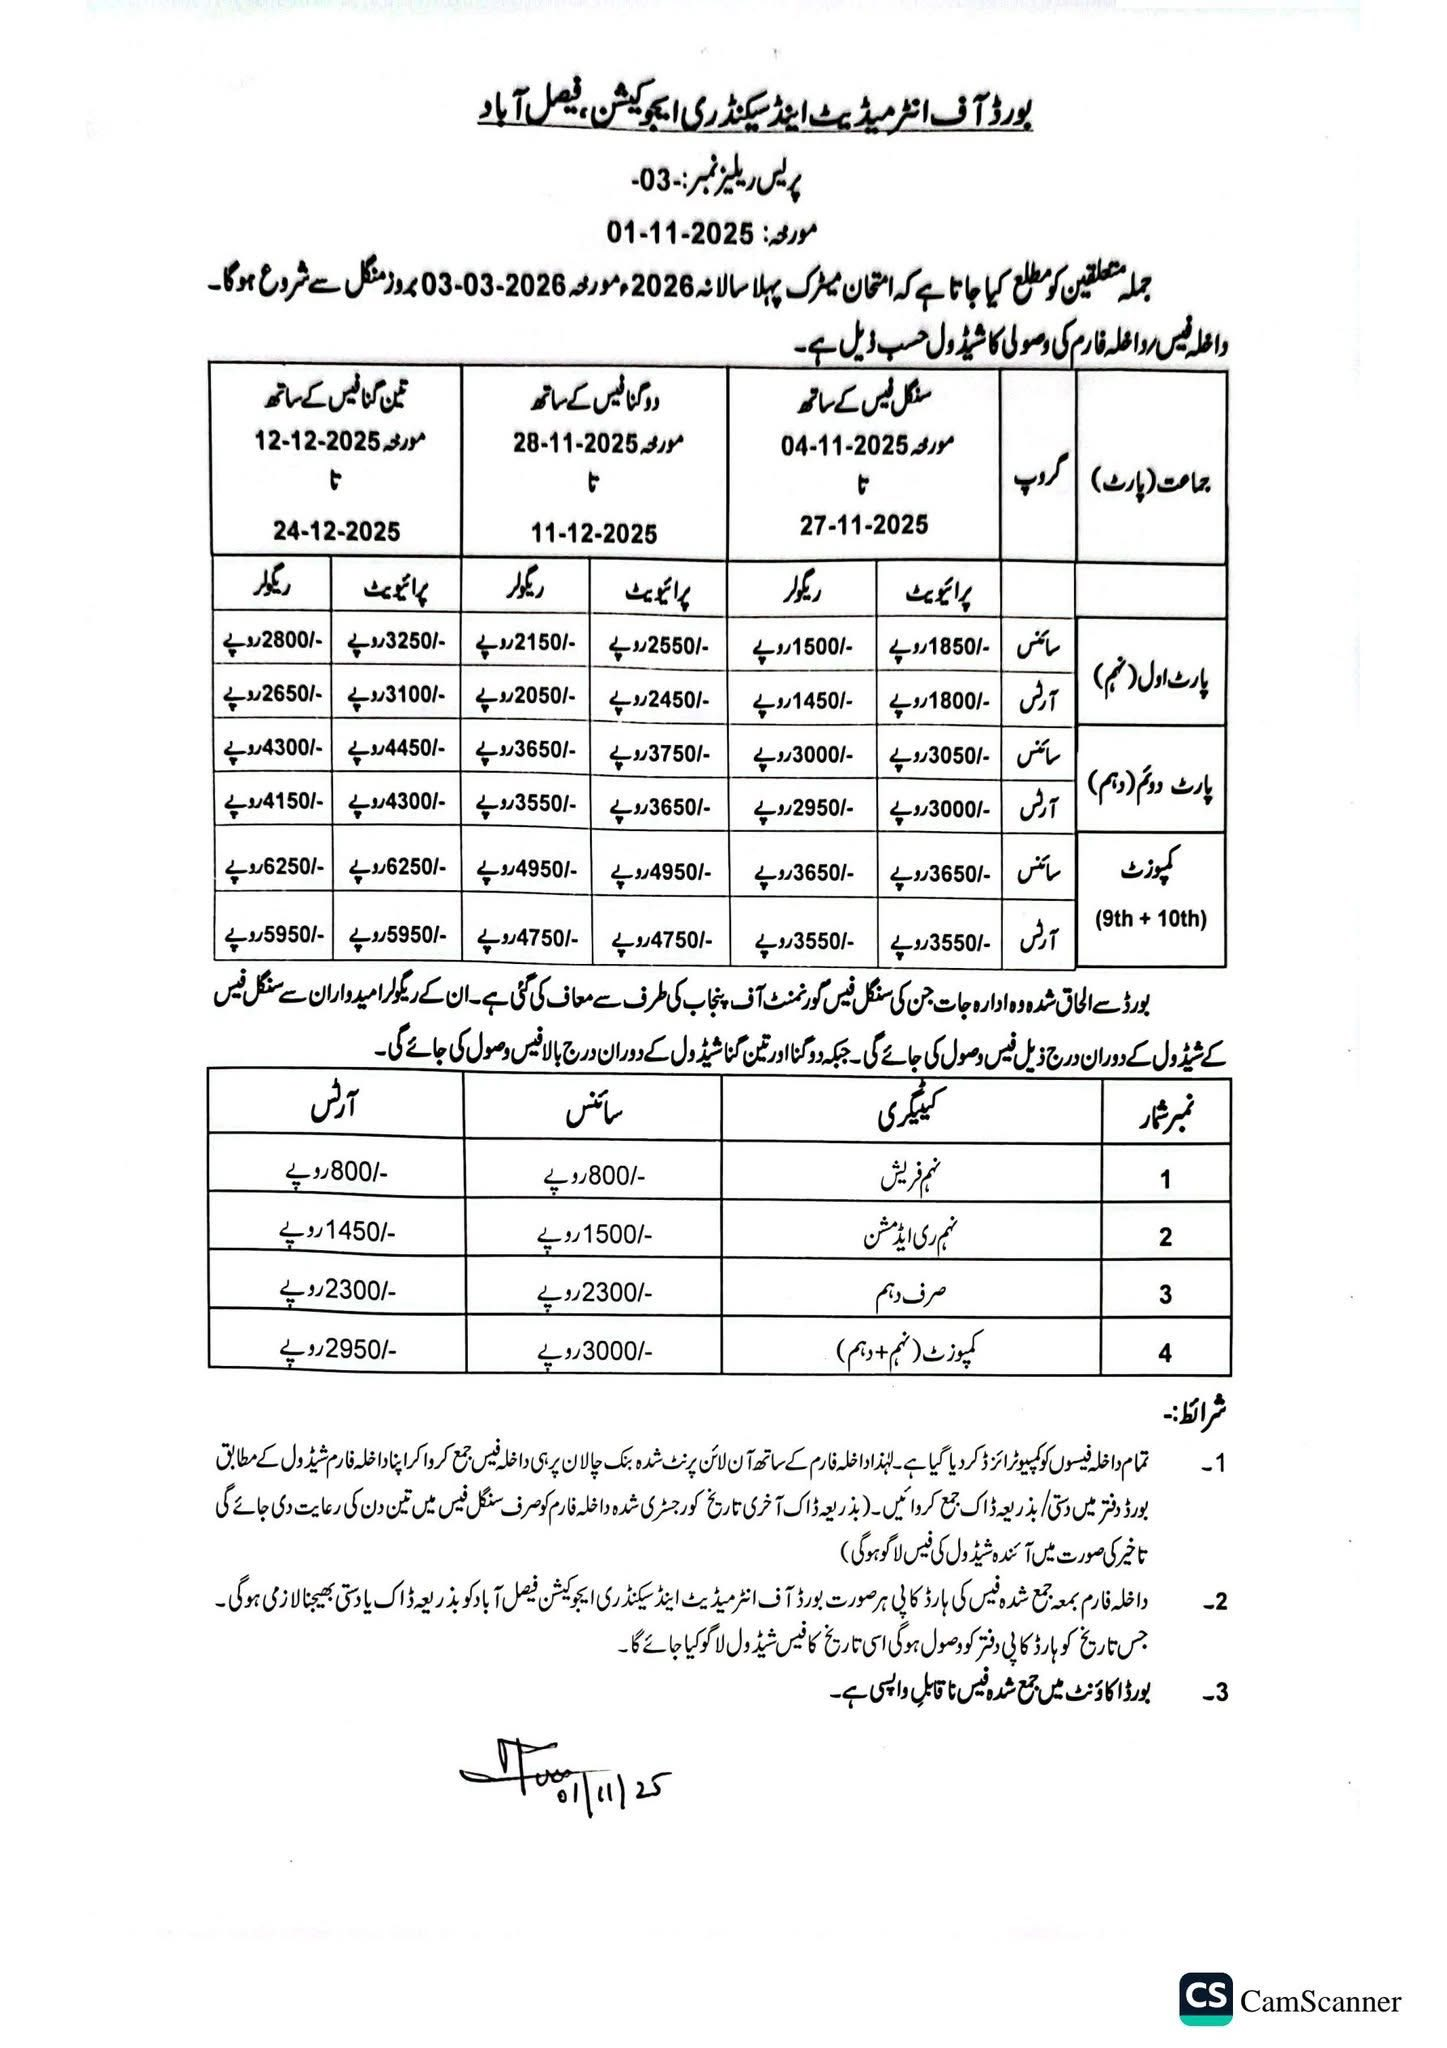 بورڈ آف انٹرمیڈیٹ اینڈ سیکنڈری ایجوکیشن، فیصل آباد
پریس ریلیز نمبر:-03-
مورخہ: 01-11-2025
جملہ متعلقین کو مطلع کیا جاتا ہے کہ امتحان میٹرک پہلا سالانہ 2026ء مورخہ 03-03-2026 بروز منگل سے شروع ہوگا۔
داخلہ فیس/داخلہ فارم کی وصولی کا شیڈول حسب ذیل ہے۔
جماعت (پارٹ) گروپ سنگل فیس کے ساتھ دوگنا فیس کے ساتھ تین گنا فیس کے ساتھ
مورخہ 04-11-2025 مورخہ 28-11-2025 مورخہ 12-12-2025
تا تا تا
27-11-2025 11-12-2025 24-12-2025
پرائیویٹ ریگولر پرائیویٹ ریگولر پرائیویٹ ریگولر
پارٹ اول (نہم) سائنس 1850/-روپے 1500/-روپے 2550/-روپے 2150/-روپے 3250/-روپے 2800/-روپے
آرٹس 1800/-روپے 1450/-روپے 2450/-روپے 2050/-روپے 3100/-روپے 2650/-روپے
پارٹ دوئم (دہم) سائنس 3050/-روپے 3000/-روپے 3750/-روپے 3650/-روپے 4450/-روپے 4300/-روپے
آرٹس 3000/-روپے 2950/-روپے 3650/-روپے 3550/-روپے 4300/-روپے 4150/-روپے
کمپوزٹ (9th + 10th) سائنس 3650/-روپے 3650/-روپے 4950/-روپے 4950/-روپے 6250/-روپے 6250/-روپے
آرٹس 3550/-روپے 3550/-روپے 4750/-روپے 4750/-روپے 5950/-روپے 5950/-روپے
بورڈ سے الحاق شدہ وہ ادارہ جات جن کی سنگل فیس گورنمنٹ آف پنجاب کی طرف سے معاف کی گئی ہے۔ ان کے ریگولر امیدواران سے سنگل فیس
کے شیڈول کے دوران درج ذیل فیس وصول کی جائے گی۔ جبکہ دوگنا اور تین گنا شیڈول کے دوران درج بالا فیس وصول کی جائے گی۔
نمبر شمار کیٹیگری سائنس آرٹس
1 نہم فریش 800/-روپے 800/-روپے
2 نہم ری ایڈمشن 1500/-روپے 1450/-روپے
3 صرف دہم 2300/-روپے 2300/-روپے
4 کمپوزٹ (نہم+دہم) 3000/-روپے 2950/-روپے
شرائط:-
1۔ تمام داخلہ فیسوں کو کمپیوٹرائزڈ کر دیا گیا ہے۔ لہٰذا داخلہ فارم کے ساتھ آن لائن پرنٹ شدہ بنک چالان پر ہی داخلہ فیس جمع کروا کر اپنا داخلہ فارم شیڈول کے مطابق
بورڈ دفتر میں دستی/ بذریعہ ڈاک جمع کروائیں۔ (بذریعہ ڈاک آخری تاریخ کو رجسٹری شدہ داخلہ فارم کو صرف سنگل فیس میں تین دن کی رعایت دی جائے گی
تاخیر کی صورت میں آئندہ شیڈول کی فیس لاگو ہوگی)
2۔ داخلہ فارم بمعہ جمع شدہ فیس کی ہارڈ کاپی ہر صورت بورڈ آف انٹرمیڈیٹ اینڈ سیکنڈری ایجوکیشن فیصل آباد کو بذریعہ ڈاک یا دستی بھیجنا لازمی ہوگی۔
جس تاریخ کو ہارڈ کاپی دفتر کو وصول ہوگی اسی تاریخ کا فیس شیڈول لاگو کیا جائے گا۔
3۔ بورڈ اکاؤنٹ میں جمع شدہ فیس ناقابلِ واپسی ہے۔
01/11/25
CS CamScanner